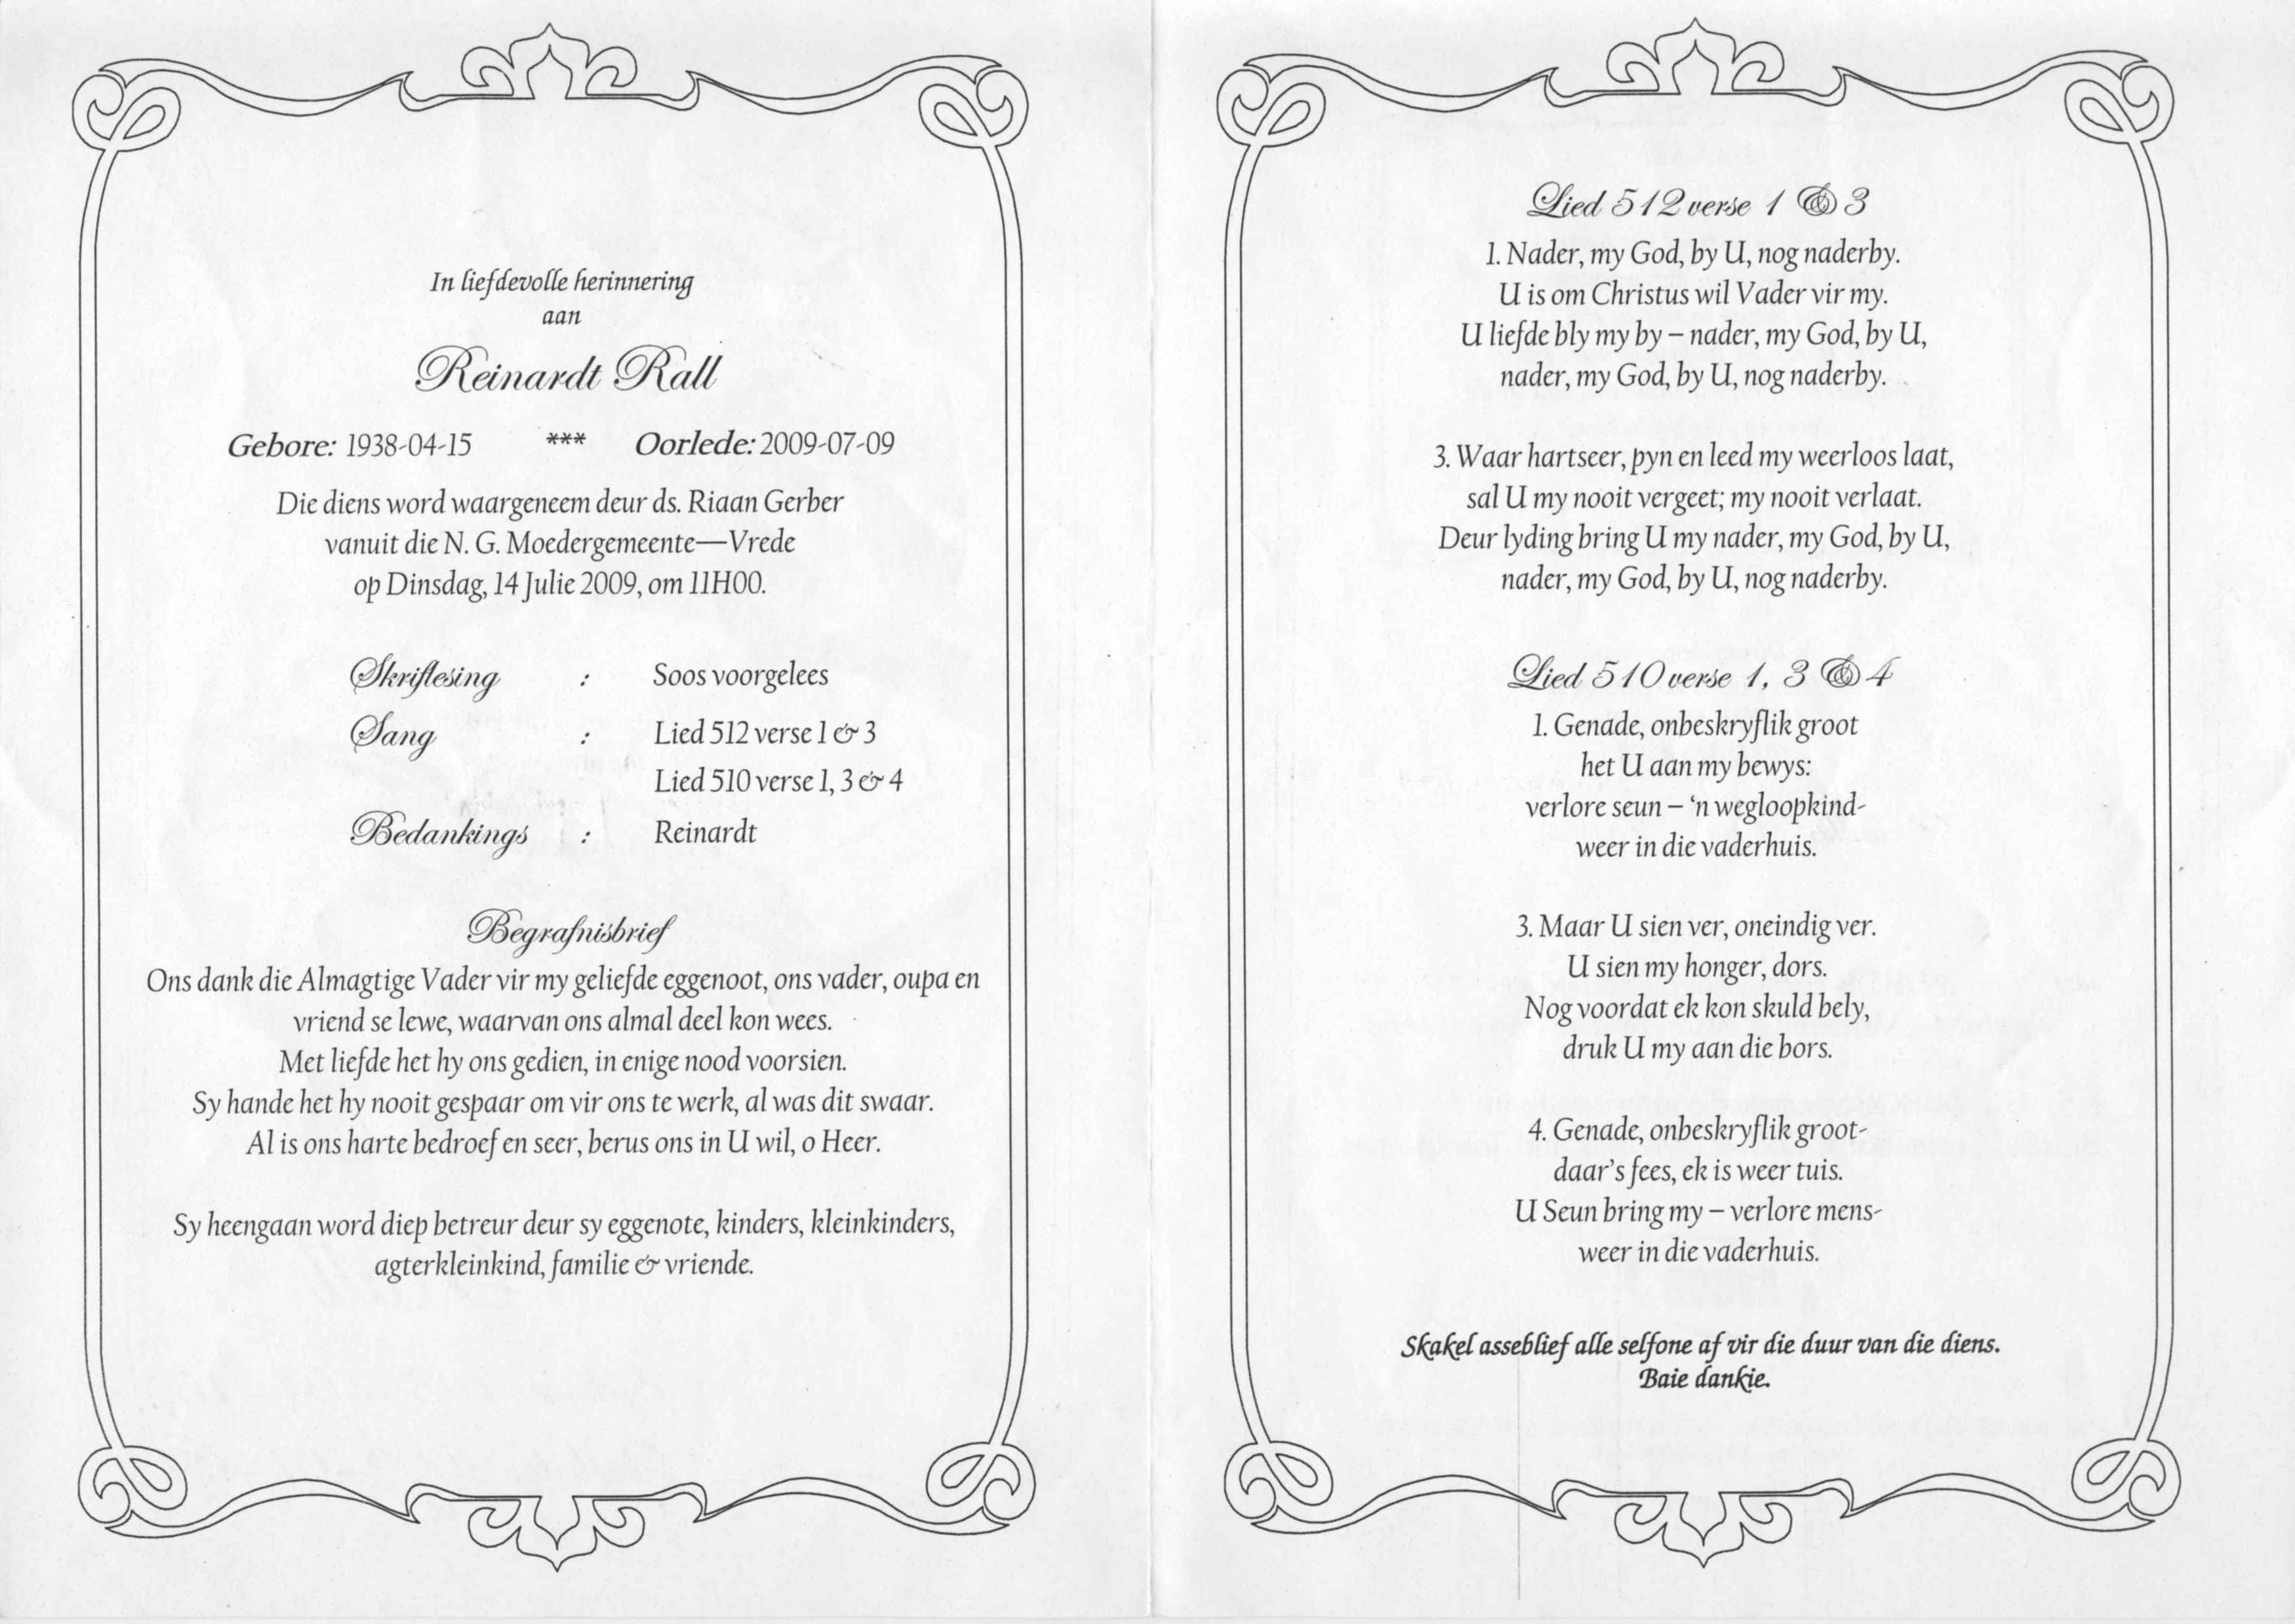 In liefdevolle herinnering
aan
Reinardt Rall
Gebore: 1938-04-15 *** Oorlede: 2009-07-09
Die diens word waargeneem deur ds. Riaan Gerber
vanuit die N. G. Moedergemeente—Vrede
op Dinsdag, 14 Julie 2009, om 11H00.
Skriflesing : Soos voorgelees
Sang : Lied 512 verse 1 & 3
Lied 510 verse 1, 3 & 4
Bedankings : Reinardt
Begrafnisbrief
Ons dank die Almagtige Vader vir my geliefde eggenoot, ons vader, oupa en
vriend se lewe, waarvan ons almal deel kon wees.
Met liefde het hy ons gedien, in enige nood voorsien.
Sy hande het hy nooit gespaar om vir ons te werk, al was dit swaar.
Al is ons harte bedroef en seer, berus ons in U wil, o Heer.
Sy heengaan word diep betreur deur sy eggenote, kinders, kleinkinders,
agterkleinkind, familie & vriende.
Lied 512 verse 1 & 3
1. Nader, my God, by U, nog naderby.
U is om Christus wil Vader vir my.
U liefde bly my by – nader, my God, by U,
nader, my God, by U, nog naderby.
3. Waar hartseer, pyn en leed my weerloos laat,
sal U my nooit vergeet; my nooit verlaat.
Deur lyding bring U my nader, my God, by U,
nader, my God, by U, nog naderby.
Lied 510 verse 1, 3 & 4
1. Genade, onbeskryflik groot
het U aan my bewys:
verlore seun – ‘n wegloopkind-
weer in die vaderhuis.
3. Maar U sien ver, oneindig ver.
U sien my honger, dors.
Nog voordat ek kon skuld bely,
druk U my aan die bors.
4. Genade, onbeskryflik groot-
daar’s fees, ek is weer tuis.
U Seun bring my – verlore mens-
weer in die vaderhuis.
Skakel asseblief alle selfone af vir die duur van die diens.
Baie dankie.